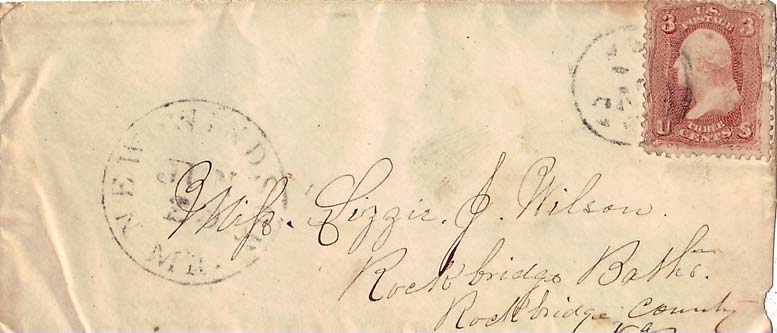 3 U.S. POSTAGE 3
U THREE CENTS S
NEW WINDSOR
JUN
MD.
Miss. Lizzie. J. Wilson.
Rockbridge Baths.
Rockbridge County
Va